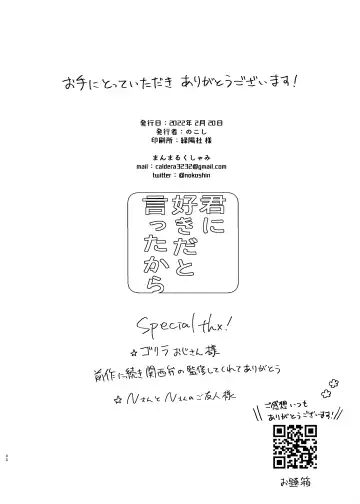 お手にとっていただき ありがとうございます!
発行日:2022年 2月 20日
発行者:のこし
印刷所:緑陽社 様
まんまるくしゃみ
mail:caldera3232@gmail.com
twitter:@nokoshin
君に
好きだと
言ったから
Special thx!
☆ゴリラおじさん様
前作に続き関西弁の監修してくれてありがとう
☆NさんとNさんのご友人様
ご感想いつも
ありがとうございます!
お題箱